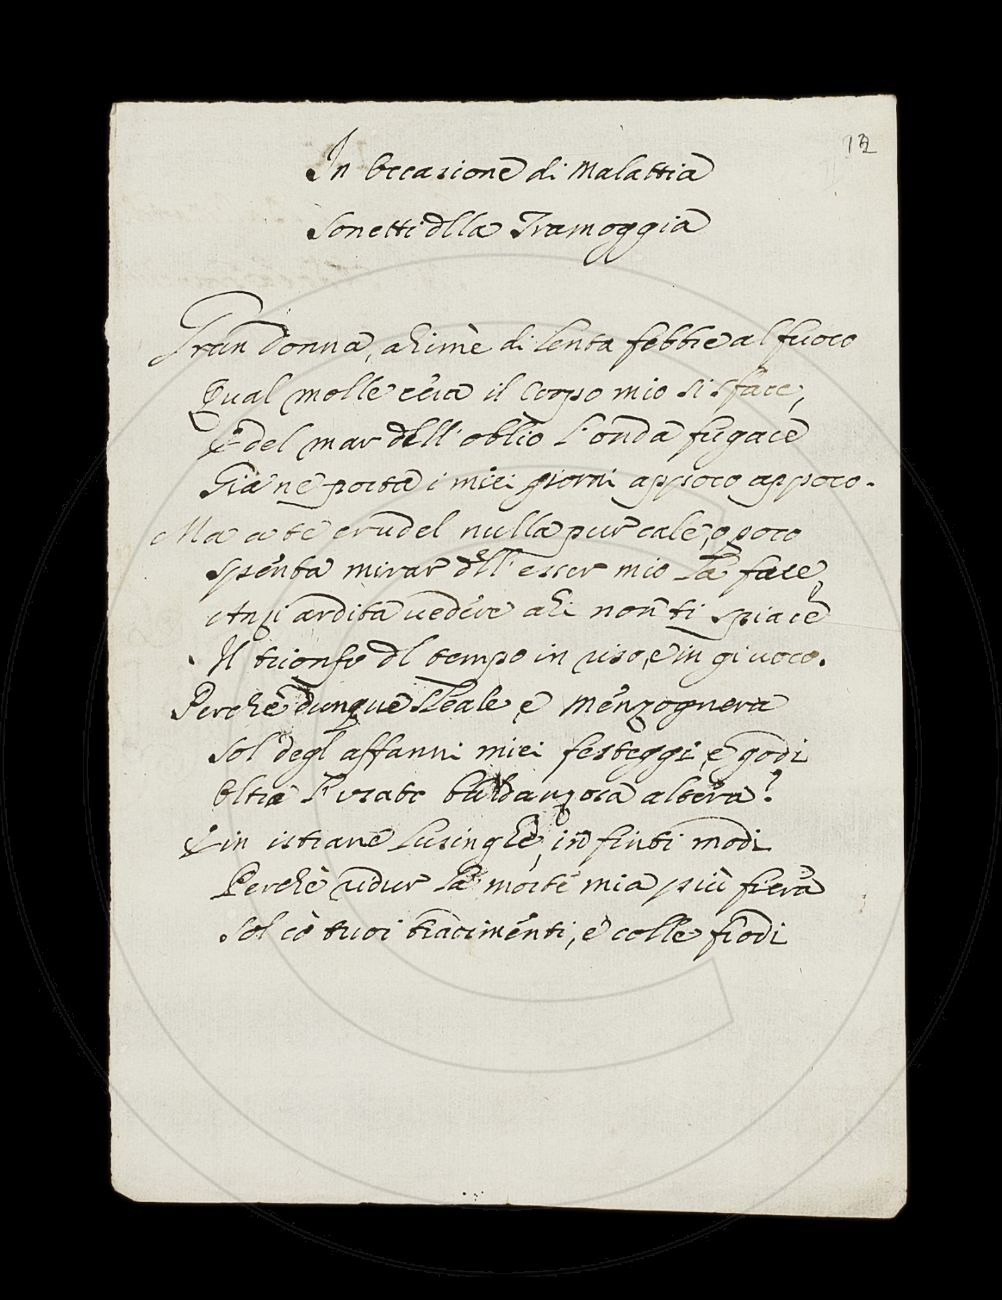 12
In Occasione di Malattia
Sonetti dlla Tramoggia
Gran Donna, ahimè di lenta febbre al fuoco
Qual molle cera il Corpo mio si sface,
E del mar dell'oblio l'onda fugace
Già ne porta i miei giorni appoco appoco.
Ma a te crudel nulla pur cale, o poco
Spenta mirar dell'esser mio la face,
Anzi ardita vedere ahi non ti spiace
Il trionfo dl tempo in riso, e in giuoco.
Perchè dunque sleale e menzognera
Sol degl'affanni miei festeggi, e godi
Oltre l'usato baldanzosa altera?
E in istrane lusinghe, in finti modi
Perchè vdur la morte mia più fiera
Sol co' tuoi tradimenti, e colle frodi